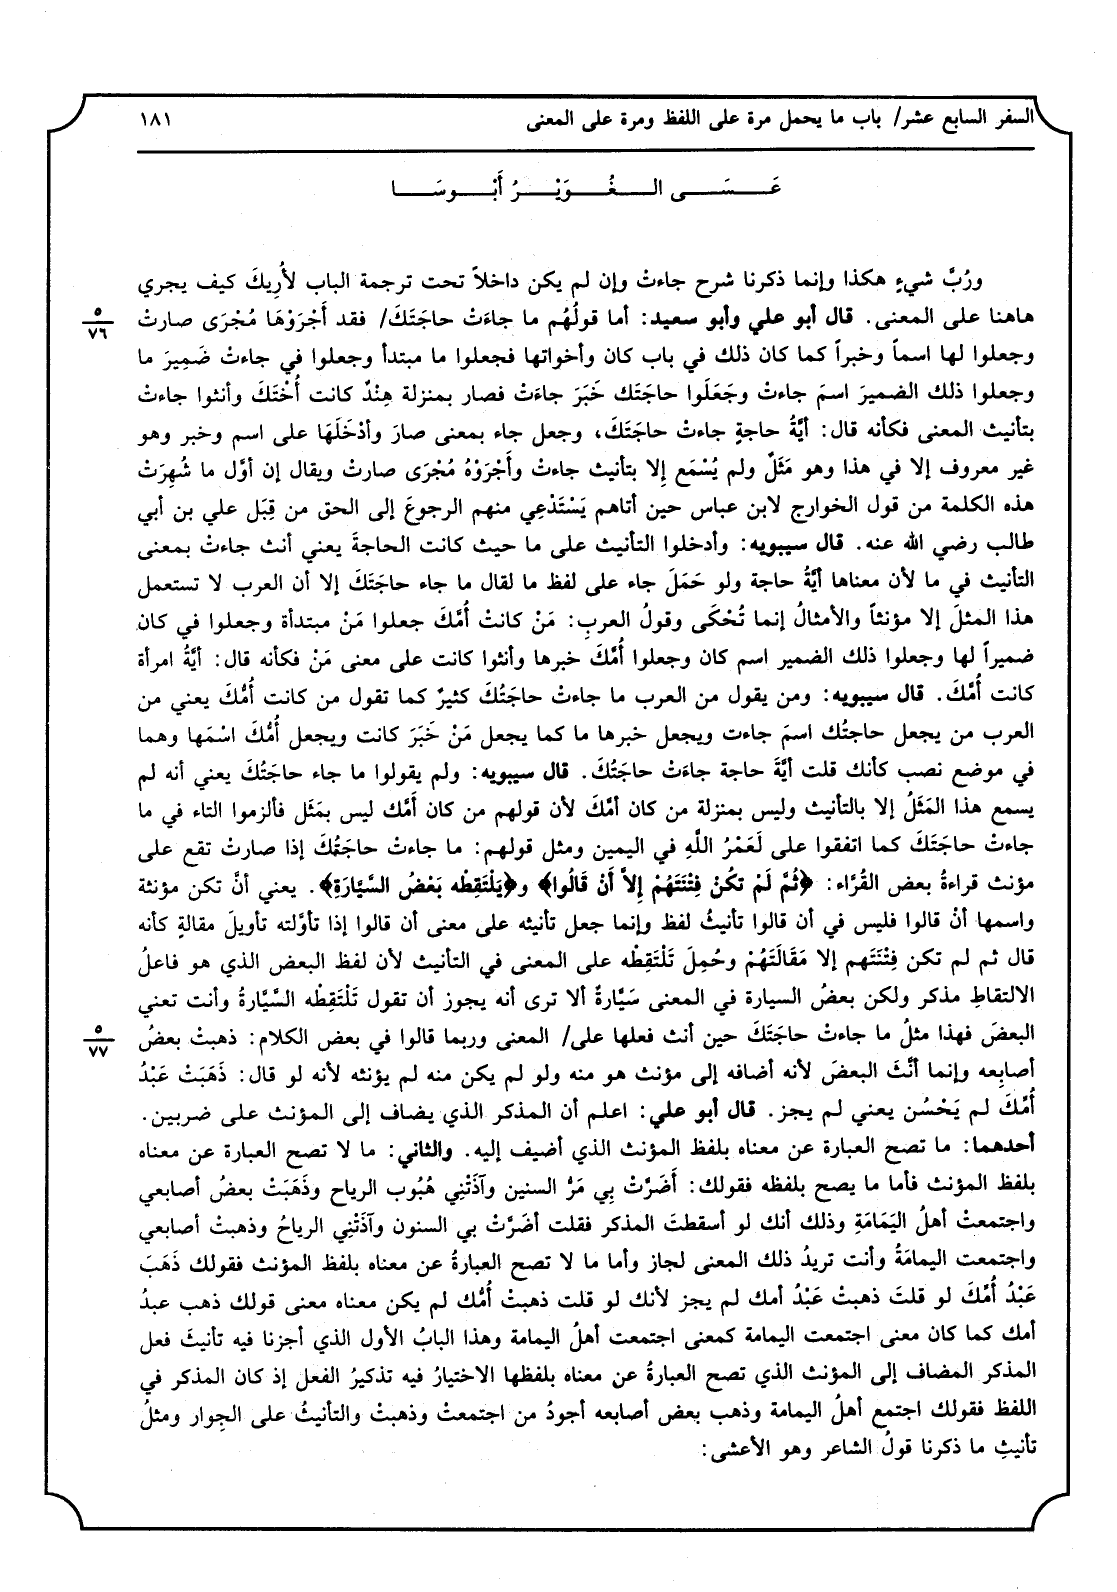 السفر السابع عشر/ باب ما يحمل مرة على اللفظ ومرة على المعنى ١٨١
عَـــسَـــى الـــغُـــوَيْـــرُ أَبْـــوسَـــا
ورُبَّ شيءٍ هكذا وإنما ذكرنا شرح جاءتْ وإن لم يكن داخلاً تحت ترجمة الباب لأُرِيكَ كيف يجري
هاهنا على المعنى. قال أبو علي وأبو سعيد: أما قولُهُم ما جاءَتْ حاجَتَكَ/ فقد أَجْرَوْهَا مُجْرَى صارتْ
٥
٧٦
وجعلوا لها اسماً وخبراً كما كان ذلك في باب كان وأخواتها فجعلوا ما مبتدأ وجعلوا في جاءتْ ضَمِيرَ ما
وجعلوا ذلك الضميرَ اسمَ جاءتْ وجَعَلَوا حاجَتَك خَبَرَ جاءَتْ فصار بمنزلة هِنْدٌ كانت أُخْتَكَ وأنثوا جاءتْ
بتأنيث المعنى فكأنه قال: أيَّةُ حاجةٍ جاءتْ حاجَتَكَ، وجعل جاء بمعنى صارَ وأدْخَلَهَا على اسم وخبر وهو
غير معروف إلا في هذا وهو مَثَلٌ ولم يُسْمَع إلا بتأنيث جاءتْ وأَجْرَوْهُ مُجْرَى صارتْ ويقال إن أوَّل ما شُهِرَتْ
هذه الكلمة من قول الخوارج لابن عباس حين أتاهم يَسْتَدْعِي منهم الرجوعَ إلى الحق من قِبَل علي بن أبي
طالب رضي الله عنه. قال سيبويه: وأدخلوا التأنيث على ما حيث كانت الحاجةَ يعني أنث جاءتْ بمعنى
التأنيث في ما لأن معناها أيَّةُ حاجة ولو حَمَلَ جاء على لفظ ما لقال ما جاء حاجَتَكَ إلا أن العرب لا تستعمل
هذا المثلَ إلا مؤنثاً والأمثالُ إنما تُحْكَى وقولُ العربِ: مَنْ كانتْ أُمَّكَ جعلوا مَنْ مبتدأة وجعلوا في كان
ضميراً لها وجعلوا ذلك الضمير اسم كان وجعلوا أُمَّكَ خبرها وأنثوا كانت على معنى مَنْ فكأنه قال: أيَّةُ امرأة
كانت أُمَّكَ. قال سيبويه: ومن يقول من العرب ما جاءتْ حاجَتُكَ كثيرٌ كما تقول من كانت أُمُّكَ يعني من
العرب من يجعل حاجتُك اسمَ جاءت ويجعل خبرها ما كما يجعل مَنْ خَبَرَ كانت ويجعل أُمُّكَ اسْمَها وهما
في موضع نصب كأنك قلت أيَّةَ حاجة جاءَتْ حاجَتُكَ. قال سيبويه: ولم يقولوا ما جاء حاجَتُكَ يعني أنه لم
يسمع هذا المَثَلُ إلا بالتأنيث وليس بمنزلة من كان أمَّكَ لأن قولهم من كان أَمَّك ليس بمَثَل فألزموا التاء في ما
جاءتْ حاجَتَكَ كما اتفقوا على لَعَمْرُ اللَّهِ في اليمين ومثل قولهم: ما جاءتْ حاجَتُكَ إذا صارتْ تقع على
مؤنث قراءةُ بعض القُرَّاء: ﴿ثُمَّ لَمْ تكُنْ فِتْنَتَهُمْ إلاَّ أَنْ قَالُوا﴾ و﴿يَلْتَقِطْه بَعْضُ السَّيَّارَةِ﴾. يعني أنَّ تكن مؤنثة
واسمها أنْ قالوا فليس في أن قالوا تأنيثُ لفظ وإنما جعل تأنيثه على معنى أن قالوا إذا تأوَّلته تأويلَ مقالةٍ كأنه
قال ثم لم تكن فِتْنَتَهم إلا مَقَالَتَهُمْ وحُمِلَ تَلْتَقِطْه على المعنى في التأنيث لأن لفظ البعض الذي هو فاعلُ
الالتقاطِ مذكر ولكن بعضُ السيارة في المعنى سَيَّارةٌ ألا ترى أنه يجوز أن تقول تَلْتَقِطْه السَّيَّارةُ وأنت تعني
البعضَ فهذا مثلُ ما جاءتْ حاجَتَكَ حين أنث فعلها على/ المعنى وربما قالوا في بعض الكلام: ذهبتْ بعضُ
٥
٧٧
أصابِعه وإنما أنَّثَ البعضَ لأنه أضافه إلى مؤنث هو منه ولو لم يكن منه لم يؤنثه لأنه لو قال: ذَهَبَتْ عَبْدُ
أُمَّكَ لم يَحْسُن يعني لم يجز. قال أبو علي: اعلم أن المذكر الذي يضاف إلى المؤنث على ضربين.
أحدهما: ما تصح العبارة عن معناه بلفظ المؤنث الذي أضيف إليه. والثاني: ما لا تصح العبارة عن معناه
بلفظ المؤنث فأما ما يصح بلفظه فقولك: أَضَرَّتْ بِي مَرُّ السنين وآذَتْنِي هُبُوب الرياح وذَهَبَتْ بعضُ أصابعي
واجتمعتْ أهلُ اليَمَامَةِ وذلك أنك لو أسقطتَ المذكر فقلت أضَرَّتْ بي السنون وآذَتْنِي الرياحُ وذهبتْ أصابعي
واجتمعت اليمامَةُ وأنت تريدُ ذلك المعنى لجاز وأما ما لا تصح العبارةُ عن معناه بلفظ المؤنث فقولك ذَهَبَ
عَبْدُ أُمِّكَ لو قلتَ ذهبتْ عَبْدُ أمك لم يجز لأنك لو قلت ذهبتْ أُمُّك لم يكن معناه معنى قولك ذهب عبدُ
أمك كما كان معنى اجتمعت اليمامة كمعنى اجتمعت أهلُ اليمامة وهذا البابُ الأول الذي أجزنا فيه تأنيثَ فعل
المذكر المضاف إلى المؤنث الذي تصح العبارةُ عن معناه بلفظها الاختيارُ فيه تذكيرُ الفعل إذ كان المذكر في
اللفظ فقولك اجتمع أهلُ اليمامة وذهب بعض أصابعه أجودُ من اجتمعتْ وذهبتْ والتأنيثُ على الجِوار ومثلُ
تأنيثِ ما ذكرنا قولُ الشاعر وهو الأعشى: